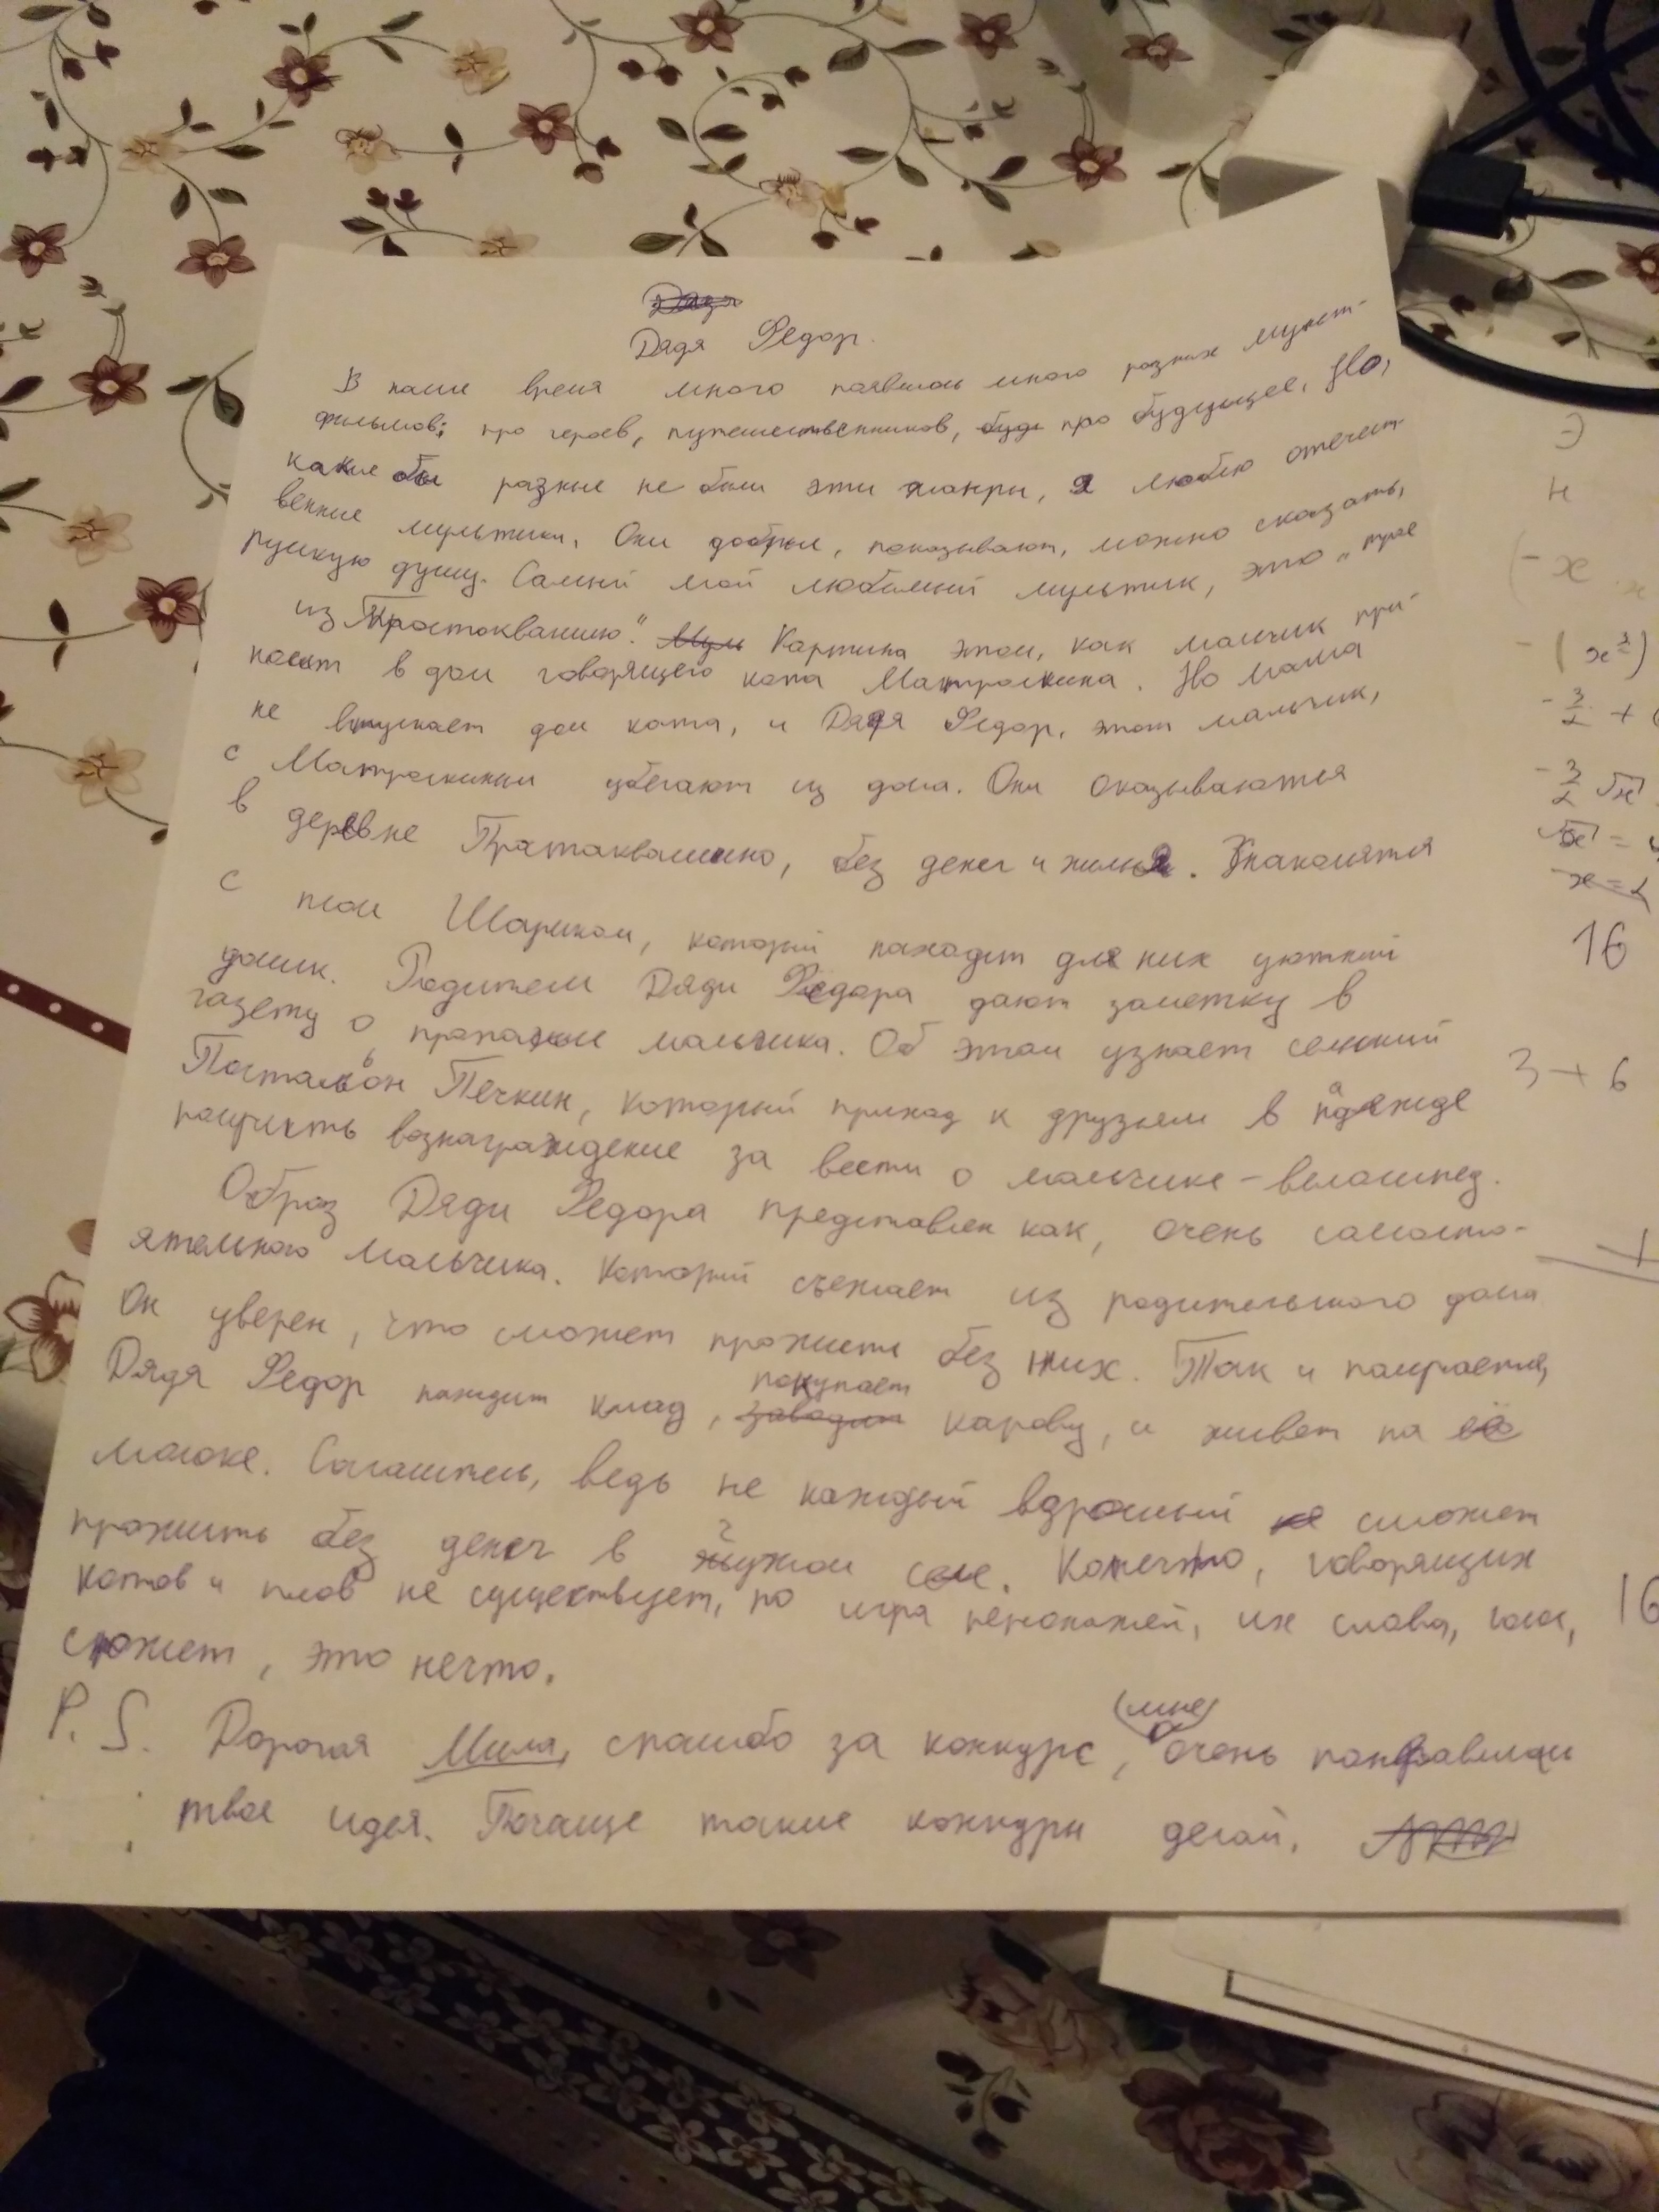 Дядя Федор.
В наше время много появилось много разных мульт-
фильмов: про героев, путешественников, про будущее. Но,
какие бы разные не были эти жанры, я люблю отечест-
венные мультики. Они добрые, показывают, можно сказать,
русскую душу. Самый мой любимый мультик, это "трое
из Простоквашино". Картина этом, как мальчик при-
носит в дом говорящего кота Матроскина. Но мама
не впускает дом кота, и Дядя Федор, этот мальчик,
с Матроскиным убегают из дома. Они оказываются
в деревне Протаквашино, без денег и жилья. Знакомятся
с псом Шариком, который находит для них уютный
домик. Родители Дяди Фёдора дают заметку в
газету о пропаже мальчика. Об этом узнает сельский
Постальон Печкин, который приход к друзьям в надежде
получить вознаграждение за вести о мальчике - велосипед.
Образ Дяди Федора представлен как, очень самосто-
ятельного мальчика. Который съезжает из родительского дома
Он уверен, что сможет прожить без них. Так и получается,
Дядя Федор находит клад, покупает карову, и живет на её
молоке. Согласитесь, ведь не каждый вдрослый сможет
прожить без денег в чужом селе. Конечно, говорящих
котов и псов не существует, но игра персонажей, их слова,
сюжет, это нечто.
P. S. Дорогая Мила, спасибо за конкурс, (мне) очень понравилась
твое идея. Почаще такие конкурсы делай.
Э
н
(-x
- (x
- 3/2 +
- 3/2 √x
√x =
x =
16
3 + 6
16